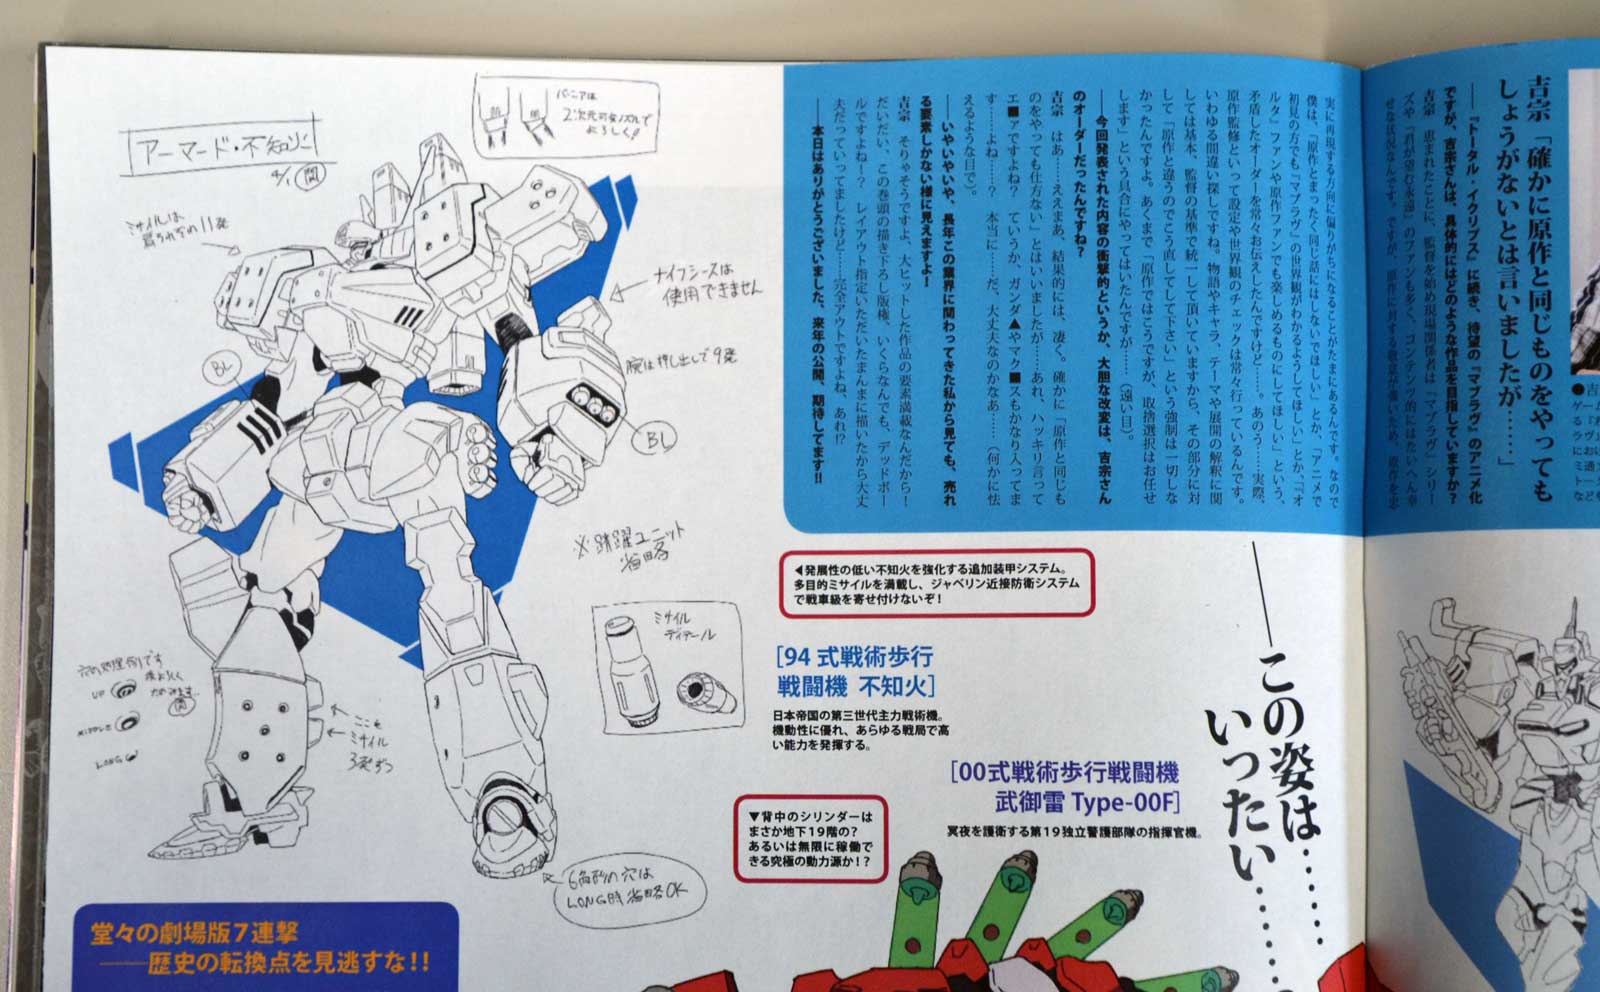 吉宗「確かに原作と同じものをやっても
しょうがないとは言いましたが……」
――『トータル・イクリプス』に続き、待望の『マブラヴ』のアニメ化
ですが、吉宗さんは、具体的にはどのような作品を目指していますか？
吉宗　恵まれたことに、監督を始め現場関係者は『マブラヴ』シリー
ズや『君が望む永遠』のファンも多く、コンテンツ的にはたいへん幸
せな状況なんです。ですが、原作に対する敬意が強いため、原作を忠
実に再現する方向に偏りがちになることがたまにあるんです。なので
僕は、「原作とまったく同じ話にはしないでほしい」とか、「アニメで
初見の方でも『マブラヴ』の世界観がわかるようしてほしい」とか「『オ
ルタ』ファンや原作ファンでも楽しめるものにしてほしい」という、
矛盾したオーダーを常々お伝えしたんですけど……。あのう……実際、
原作監修といって設定や世界観のチェックは常々行っているんです。
いわゆる間違い探しですね。物語やキャラ、テーマや展開の解釈に関
しては基本、監督の基準で統一して頂いていますから、その部分に対
して「原作と違うのでこう直してして下さい」という強制は一切しな
かったんですよ。あくまで「原作ではこうですが、取捨選択はお任せ
します」という具合にやってはいたんですが……（遠い目）。
――今回発表された内容の衝撃的というか、大胆な改変は、吉宗さん
のオーダーだったんですね？
吉宗　はあ……ええまあ、結果的には、凄く。確かに「原作と同じも
のをやっても仕方ない」とはいいましたが……あれ、ハッキリ言って
エ■ァですよね？　ていうか、ガンダ▲やマク■スもかなり入ってま
す……よね……？　本当に……だ、大丈夫なのかなあ……（何かに怯
えるような目で）。
――いやいやいや、長年この業界に関わってきた私から見ても、売れ
る要素しかない様に見えますよ！
吉宗　そりゃそうですよ、大ヒットした作品の要素満載なんだから！
だいだい、この巻頭の描き下ろし版権、いくらなんでも、デッドボー
ルですよね！？　レイアウト指定いただいたまんまに描いたから大丈
夫だっていってましたけど……完全アウトですよね、あれ!?
――本日はありがとうございました、来年の公開、期待してます!!
アーマード・不知火
4/1 関
バーニアは
2次元可変ノズルで
よろしく!!
ミサイルは
肩うち
11発
ナイフシースは
使用できません
腕は押し出しで9発
BL
BL
※跳躍ユニット
省略
ミサイル
ディテール
穴の処理例です
UP
MIDDLE
LONG
関
ここも
ミサイル
3発ずつ
6角形の穴は
LONG時省略OK
◀発展性の低い不知火を強化する追加装甲システム。
多目的ミサイルを満載し、ジャベリン近接防衛システム
で戦車級を寄せ付けないぞ！
[94 式戦術歩行
戦闘機 不知火]
日本帝国の第三世代主力戦術機。
機動性に優れ、あらゆる戦局で高
い能力を発揮する。
[00式戦術歩行戦闘機
武御雷 Type-00F]
冥夜を護衛する第19独立警護部隊の指揮官機。
▼背中のシリンダーは
まさか地下19階の？
あるいは無限に稼働で
きる究極の動力源か!?
――この姿は……
いったい……
堂々の劇場版7連撃
――歴史の転換点を見逃すな!!